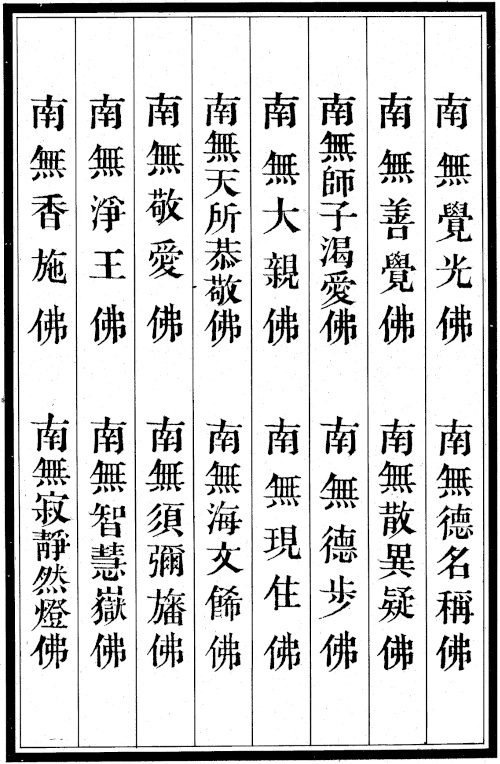 南無覺光佛 南無德名稱佛
南無善覺佛 南無散異疑佛
南無師子渴愛佛 南無德步佛
南無大親佛 南無現住佛
南無天所恭敬佛 南無海文餙佛
南無敬愛佛 南無須彌旛佛
南無淨王佛 南無智慧嶽佛
南無香施佛 南無寂靜然燈佛